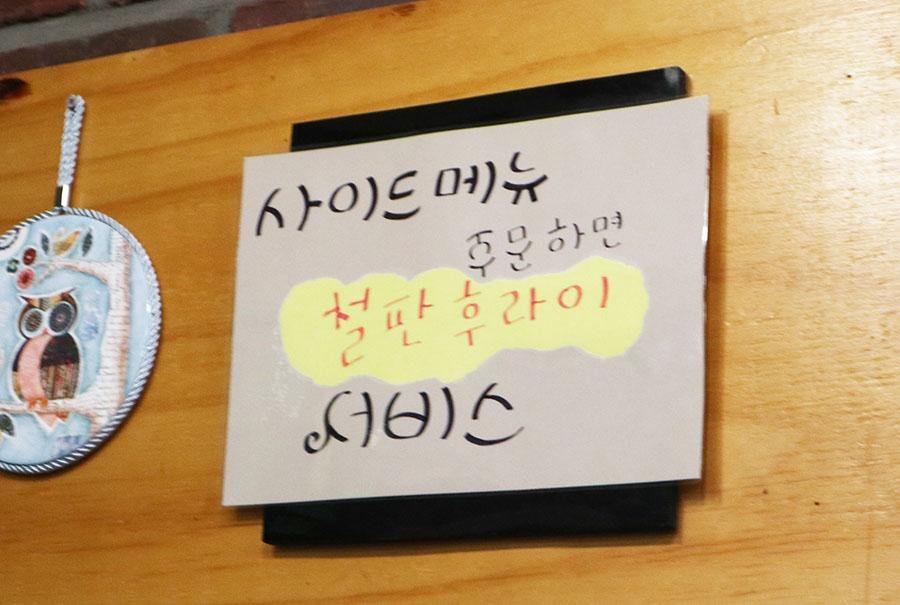 사이드메뉴
주문하면
철판후라이
서비스